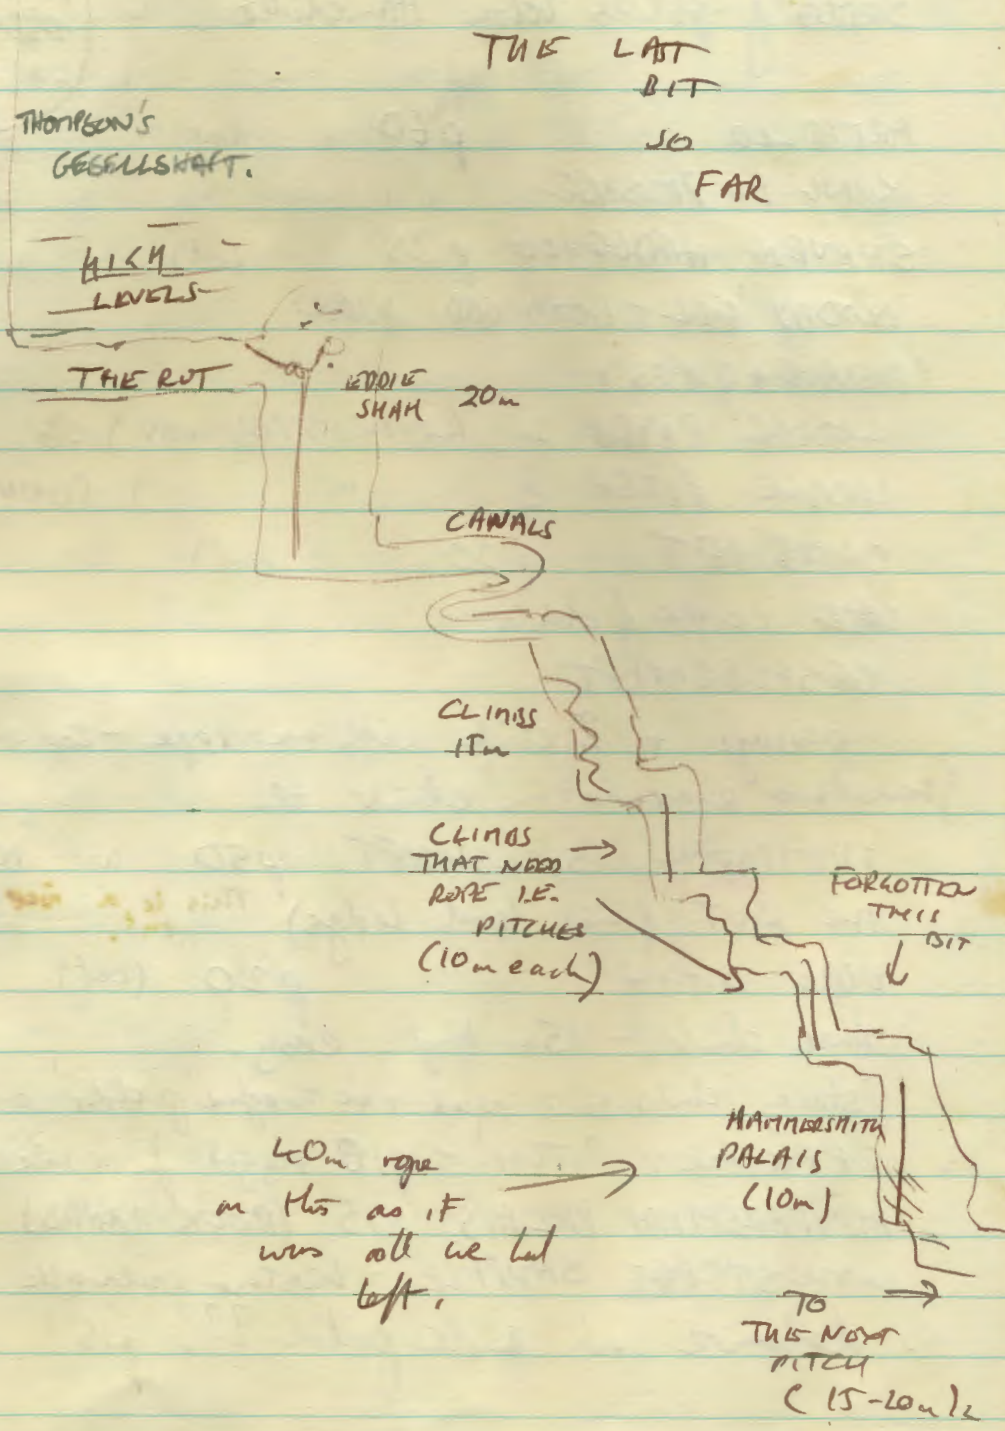 THE LAST
BIT
SO
FAR
THOMPSON'S
GESELLSHAFT.
HIGH
LEVELS
THE RUT
EDDIE
SHAH 20m
CANALS
CLIMBS
15m
CLIMBS
THAT NEED
ROPE I.E.
PITCHES
(10m each)
FORGOTTEN
THIS
BIT
HAMMERSMITH
PALAIS
(10m)
40m rope
on this as it
was all we had
left.
TO
THE NEXT
PITCH
(15-20m)